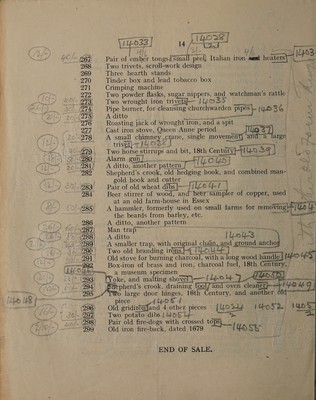 14033 14 14028
267 Pair of ember tongs, small peel, Italian iron and heaters
268 Two trivets, scroll-work design
269 Three hearth stands
270 Tinder box and lead tobacco box
271 Crimping machine
272 Two powder flasks, sugar nippers, and watchman's rattle
273 Two wrought iron trivets 14035
274 Pipe burner, for cleansing churchwarden pipes 14036
275 A ditto
276 Roasting jack of wrought iron, and a spit
277 Cast iron stove, Queen Anne period 14037
278 A small chimney crane, single movement, and a large
trivet 14038
279 Two horse stirrups and bit, 18th Century 14039
280 Alarm gun
281 A ditto, another pattern 14040
282 Shepherd's crook, old hedging hook, and combined man-
gold hook and cutter
283 Pair of old wheat dibs 14041
284 Beer stirrer of wood, and beer sampler of copper, used
at an old farm-house in Essex
285 A hameler, formerly used on small farms for removing
the beards from barley, etc.
286 A ditto, another pattern
287 Man trap
288 A ditto 14043
289 A smaller trap, with original chain, and ground anchor
290 Two old branding irons 14044
291 Old stove for burning charcoal, with a long wood handle 14045
292 Box-iron of brass and iron, charcoal fuel, 18th Century,
a museum specimen
293 Yoke, and malting shovel 14047 14050
294 Shepherd's crook, draining tool and oven cleaner 14049
14048 295 Two large door hinges, 16th Century, and another old
piece 14051
296 Old grinder and 4 other pieces 14052
297 Two potato dibs 14054
298 Pair old fire-dogs with crossed tops 14055
299 Old iron fire-back, dated 1679
END OF SALE.